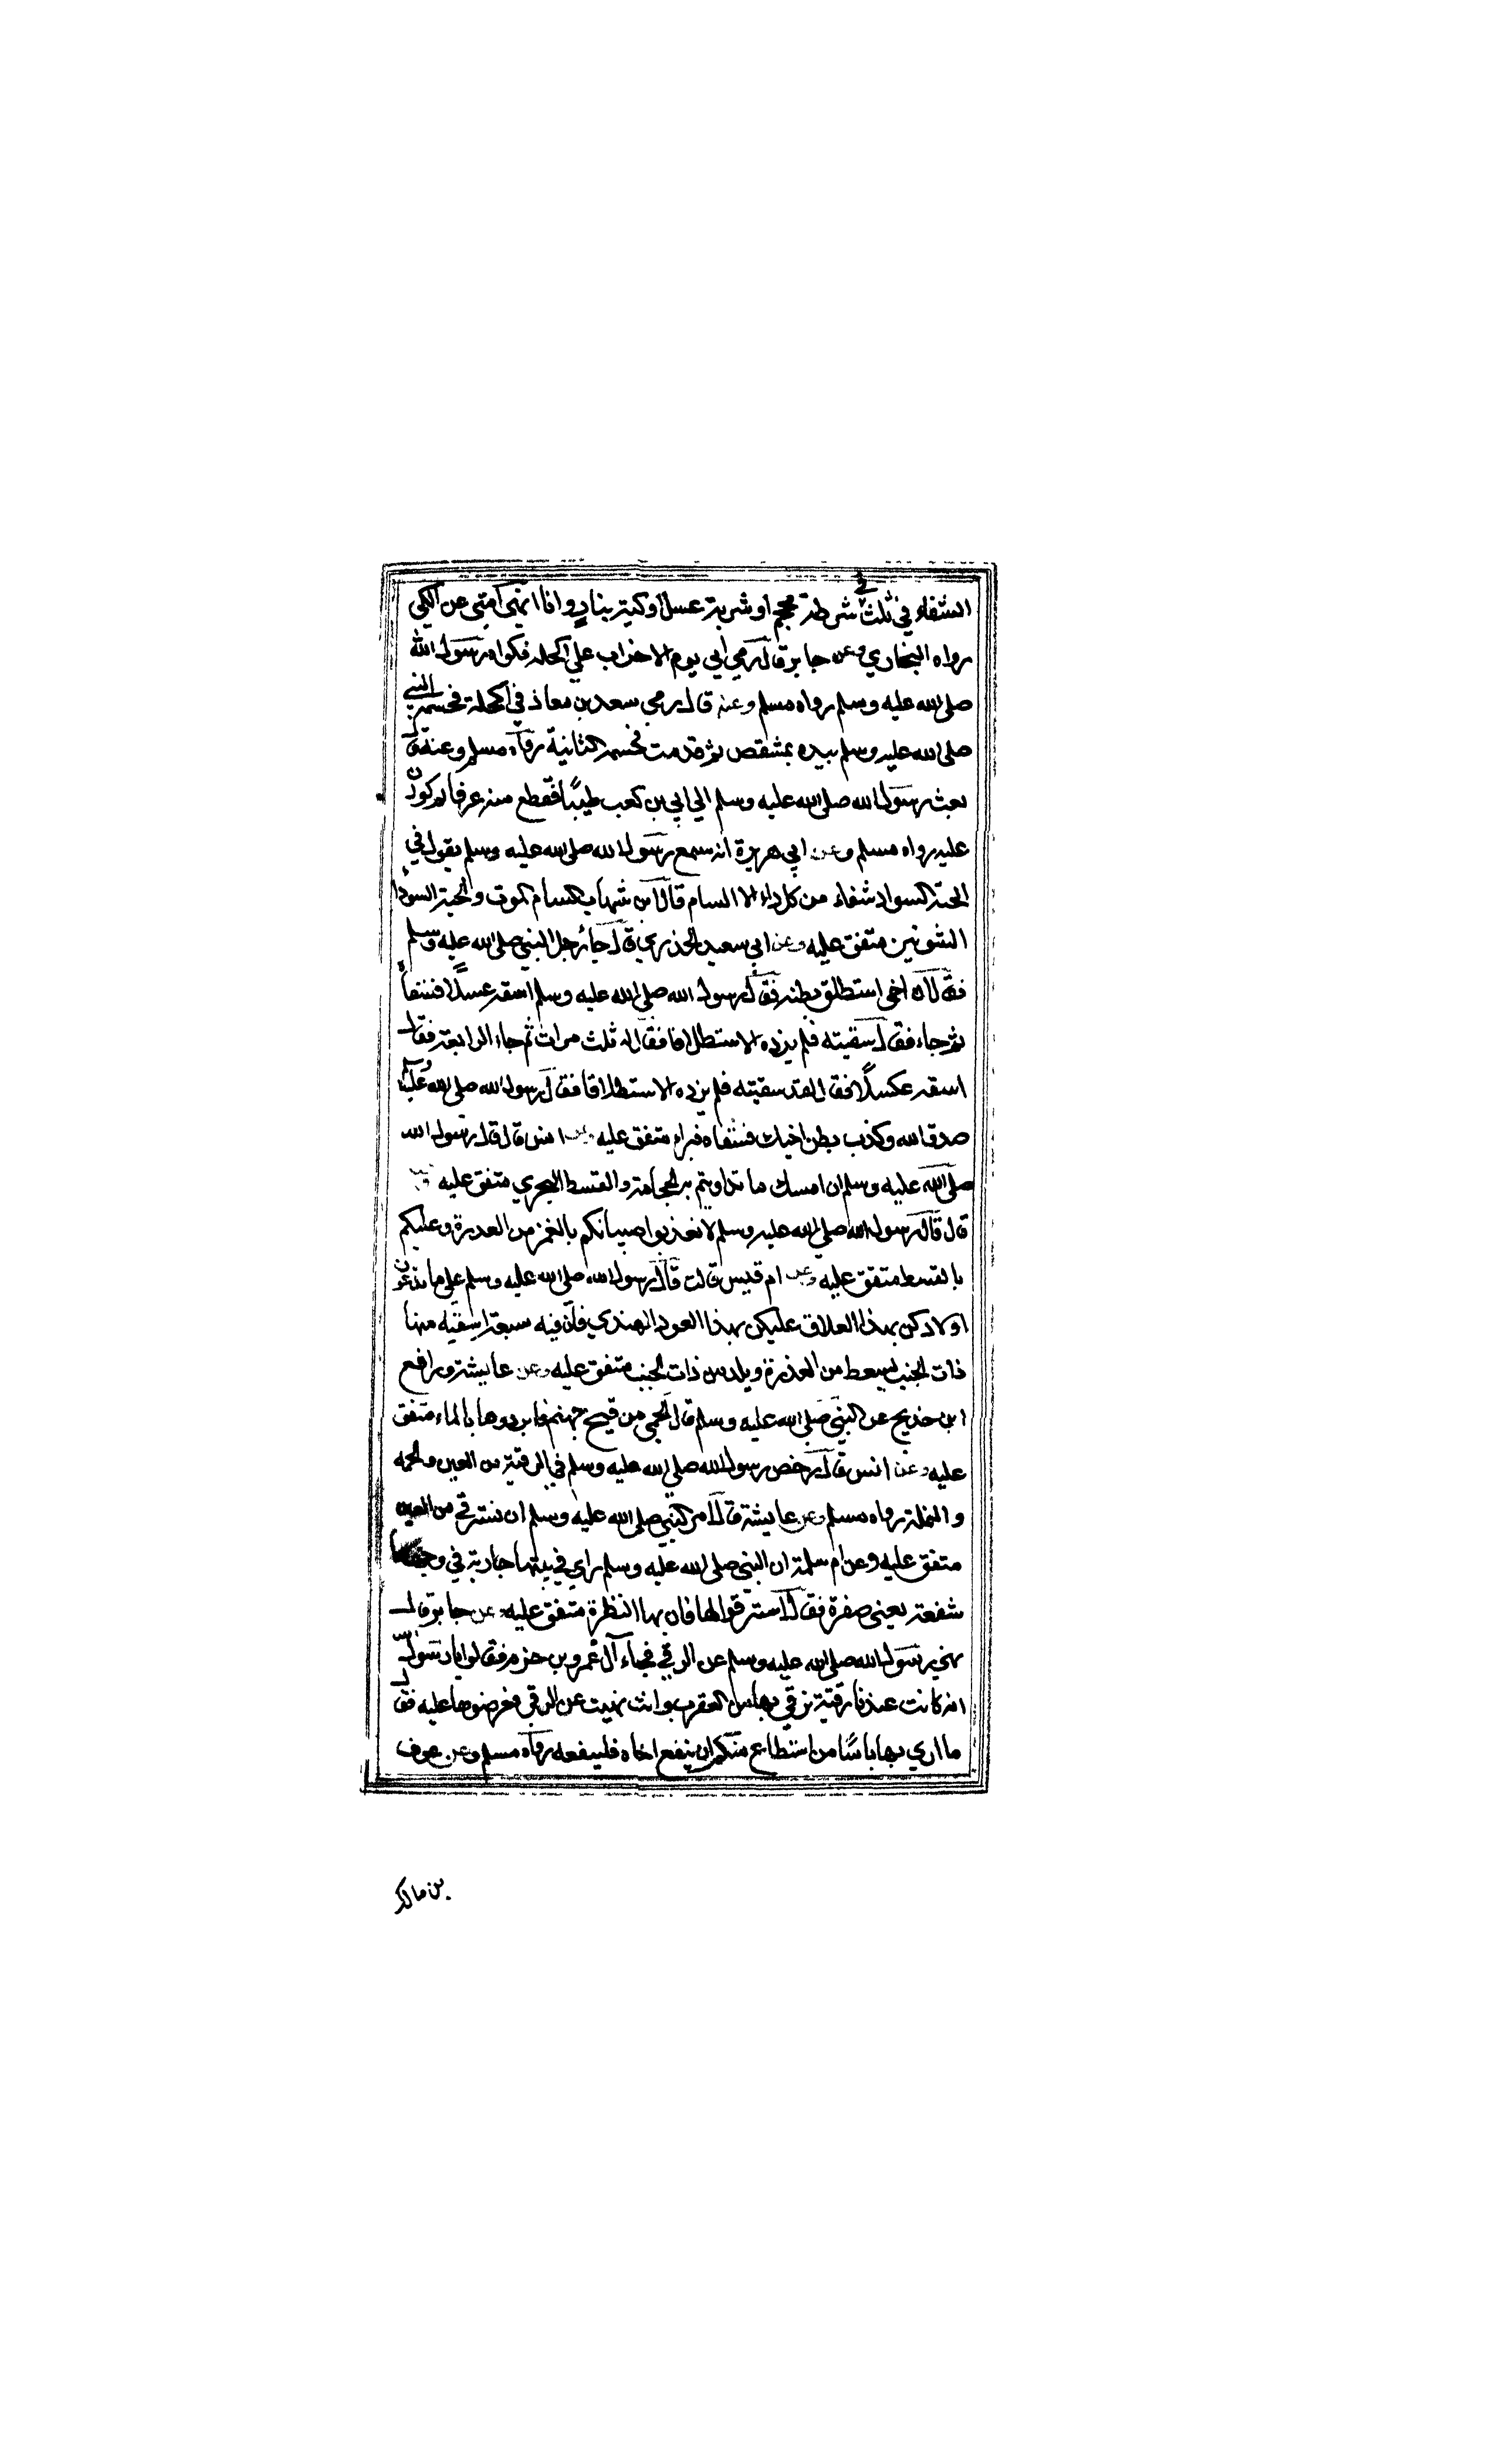 الشفاء في ثلث في شرطة محجم او شربة عسل او كية بنار وانا انهى امتي عن الكي
رواه البخاري وعن جابر قال رمي ابي يوم الاحزاب علي اكحله فكواه رسول الله
صلى الله عليه وسلم رواه مسلم وعنه قال رمي سعد بن معاذ في اكحله فحسمه النبي
صلى الله عليه وسلم بيده بمشقص ثم قدمت فحسمه الثانية رواه مسلم وعنه قال
بعث رسول الله صلى الله عليه وسلم الي ابي بن كعب طبيبًا فقطع منه عرقا ثم كواه
عليه رواه مسلم وعن ابي هريرة انه سمع رسول الله صلى الله عليه وسلم يقول في
الحبة السواد شفاء من كل داء الا السام قال ابن شهاب السام الموت والحبة السوداء
الشونين متفق عليه وعن ابي سعيد الخذري قال جاء رجل النبي صلى الله عليه وسلم
فقال ان اخي استطلق بطنه فقال رسول الله صلى الله عليه وسلم اسقه عسلًا فسقاه
ثم جاء فقال سقيته فلم يزده الا استطلاقا فقال له ثلث مرات ثم جاء الرابعة فقال
اسقه عسلًا فقال لقد سقيته فلم يزده الا استطلاقا فقال رسول الله صلى الله عليه وسلم
صدق الله وكذب بطن اخيك فسقاه فبراء متفق عليه وعن انس قال قال رسول الله
صلى الله عليه وسلم ان امسك ما تداويتم به الحجامة والقسط البحري متفق عليه
قال قال رسول الله صلى الله عليه وسلم لا تعذبوا صبيانكم بالغمز من العدرة وعليكم
بالقسط متفق عليه وعن ام قيس قالت قال رسول الله صلى الله عليه وسلم علي ما تدغرن
اولادكن بهذا العلاق عليكن بهذا العود الهندي فان فيه سبعة اشفيه منها
ذات الجنب يسعط من العذرة ويلد من ذات الجنب متفق عليه وعن عايشة ورافع
ابن خديج عن النبي صلى الله عليه وسلم قال الحمى من فيح جهنم فابردوها بالماء متفق
عليه وعن انس قال رخص رسول الله صلى الله عليه وسلم في الرقية من العين والحمه
والنملة رواه مسلم وعن عايشة قال امر النبي صلى الله عليه وسلم ان نسترقي من العين
متفق عليه وعن ام سلمة ان النبي صلى الله عليه وسلم راي في بيتها جارية في وجهها
سفعة يعني صفرة فقال استرقوا لها فان بها النظرة متفق عليه وعن جابر قال
نهي رسول الله صلى الله عليه وسلم عن الرقي فجاء آل عمرو بن حزم فقالوا يا رسول الله
انه كانت عندنا رقية نرقي بها من العقرب وانت نهيت عن الرقي فعرضوها عليه فقال
ما اري بها باسًا من استطاع منكم ان ينفع اخاه فلينفعه رواه مسلم وعن عوف
بن مالك